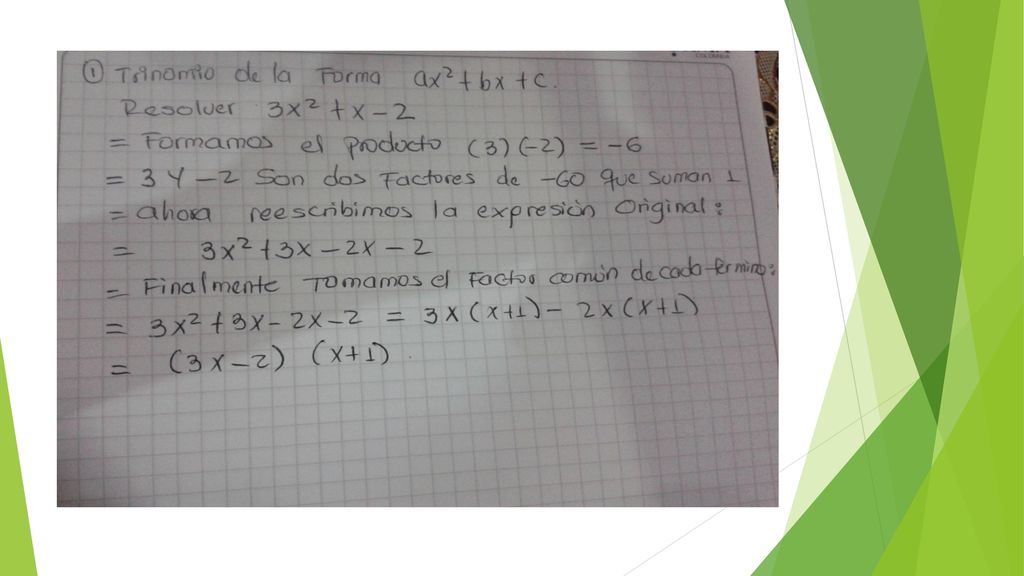 ① Trinomio de la Forma ax²+bx+c.
Resolver 3x²+x-2
= Formamos el producto (3)(-2) = -6
= 3 Y -2 Son dos Factores de -60 que suman 1
= ahora reescribimos la expresión Original:
= 3x²+3x-2x-2
= Finalmente Tomamos el Factor común de cada término:
= 3x²+3x-2x-2 = 3x(x+1)-2x(x+1)
= (3x-2) (x+1).